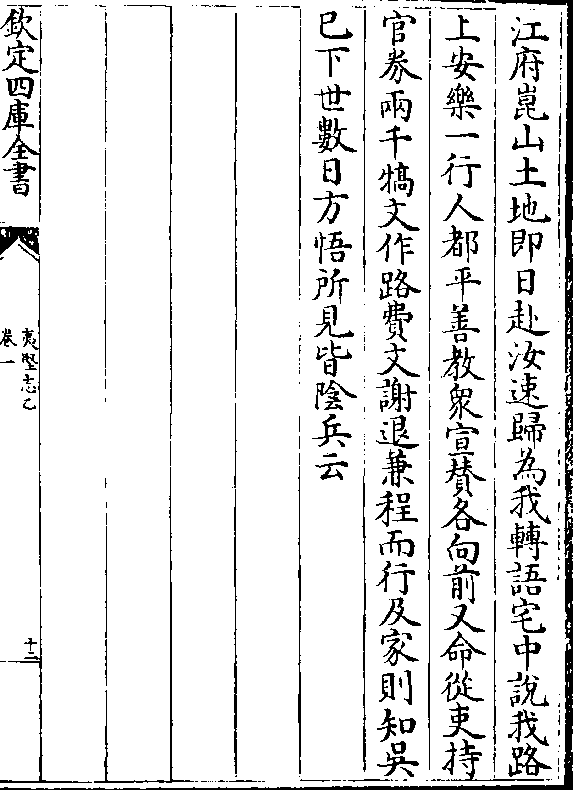 江府崑山土地即日赴汝速歸為我轉語宅中說我路
上安樂一行人都平善教衆宣賛各向前又命從吏持
官劵兩千犒文作路費文謝退兼程而行及家則知吳
已下世數日方悟所見皆陰兵云
欽定四庫全書
夷堅志乙
卷一
十三